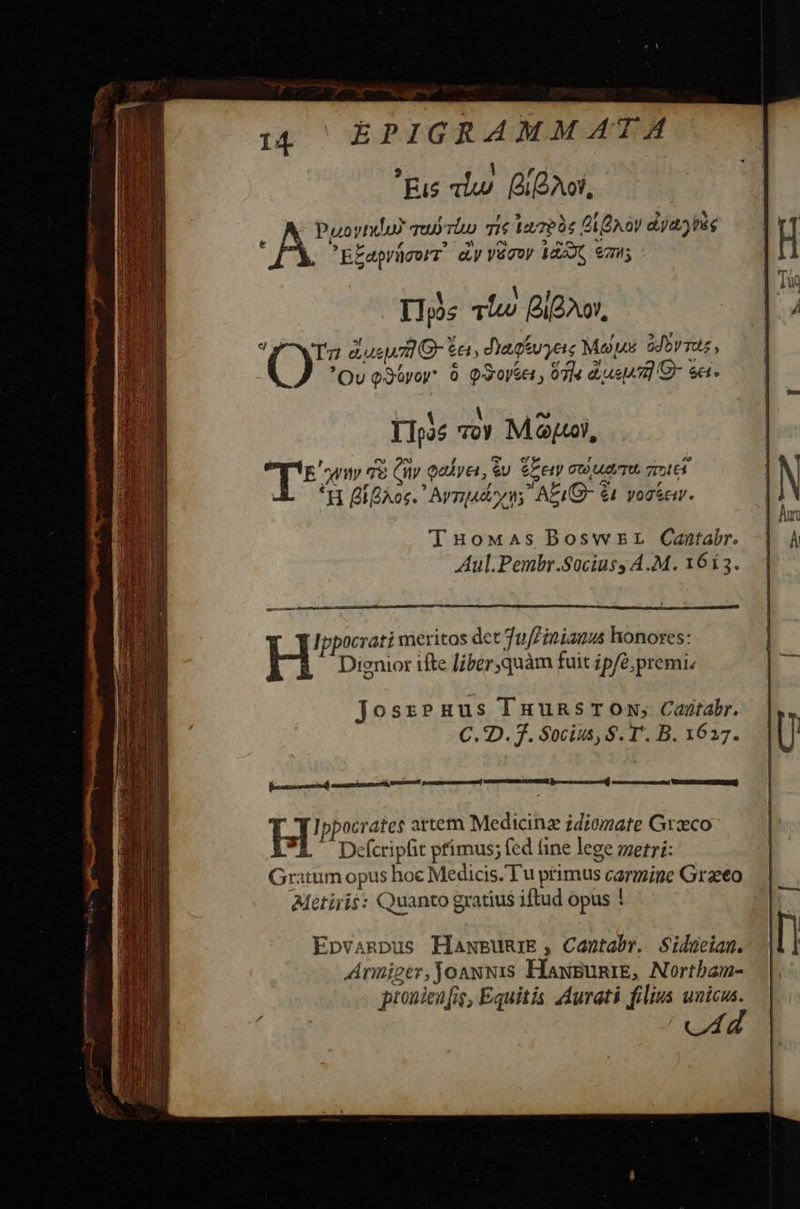 14 EPIGRAMMATA
Εις τὴν βίβλον,
Ἁ Ρμονικὴν ταύτην τὶς ἰατρὸς βίβλον ἀναγνὺς
Ἐξαρνήσοιτ' ἂν νῦσον
Πρὸς τὴν βίβλον,
Ὅ Τι ἄμεμπτος ἔει, διαφεύγεις Μώμου ὀδόντας,
Ὀυ φθόνον· ὁ φθονέει, ὅτις ἄμεμπτος ἔει.
Πρὸς τὸν Μῶμον,
Ἡ βίβλος. Ἀξιος ἔι νοσέειν.
THOMAS BOSWEL Cantabr.
Aul.Pembr.Socius, A.M. 1613.
HIppocrati meritos det Juffinianus honores:
Dignior iste liber, quàm fuit ipse, premi.
JOSEPHUS THURSTON, Cantabr.
C. D. J. Socius, S. T. B. 1627.
HIppocrates artem Medicinæ idiomate Græco
Descripsit primus; sed sine lege metri:
Gratum opus hoc Medicis. Tu primus carmine Græco
Metiris: Quanto gratius istud opus !
EDVARDUS HANBURIE, Cantabr. Sidneian.
Armiger, JOANNIS HANBURIE, Northam-
ptoniensis, Equitis Aurati filius unicus.
Ad